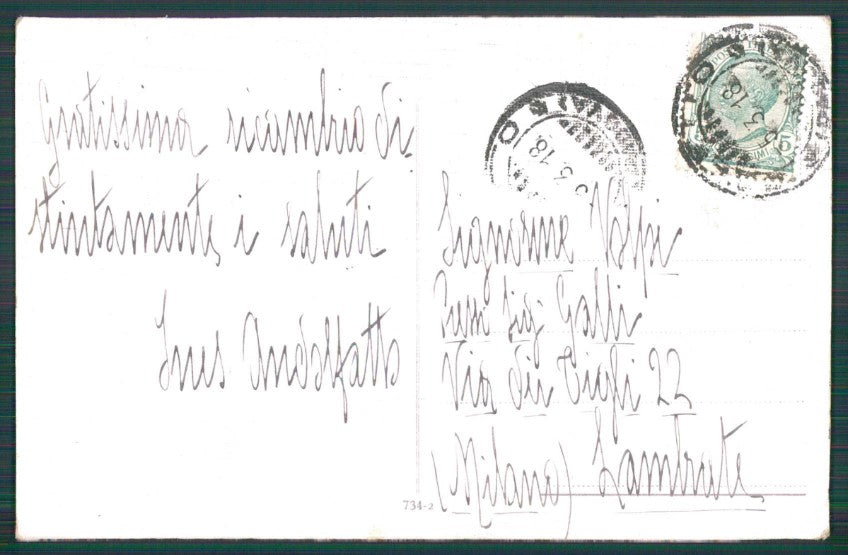 Gratissima ricambio di-
stintamente i saluti
Ines Andolfatto
Signorine Volpi
Presso Sig Galli
Via dei Tigli 22
(Milano) Lambrate
734-2
5.3.18
5.3.18